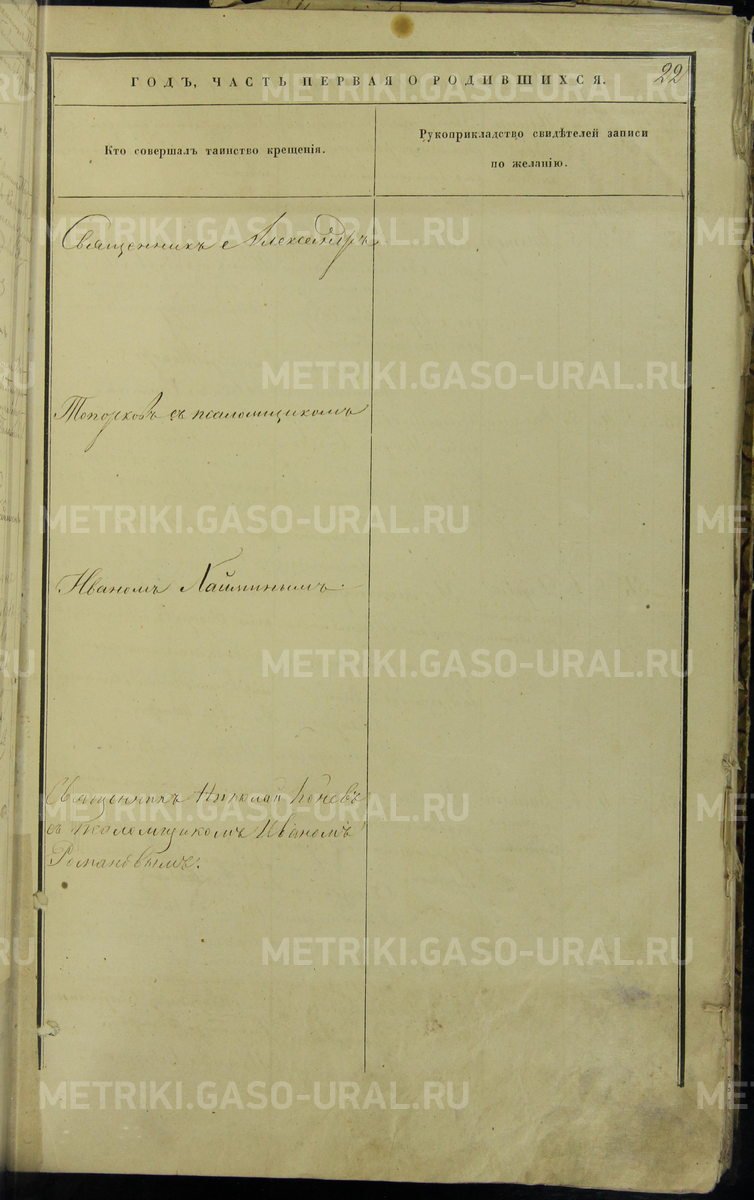 ГОДЪ, ЧАСТЬ ПЕРВАЯ О РОДИВШИХСЯ.
22
Кто совершалъ таинство крещенія.
Рукоприкладство свидѣтелей записи
по желанію.
Священникъ Александръ
Топорковъ съ псаломщикомъ
Иваномъ Хайминымъ.
Священникъ Николай
съ псаломщикомъ Иваномъ
Романовымъ.
METRIKI.GASO-URAL.RU